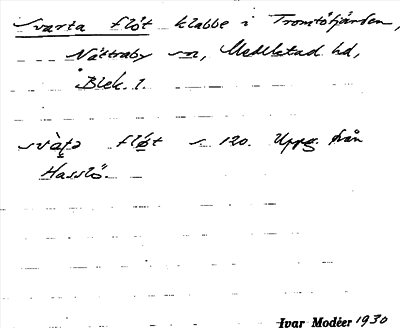 Svarta flöt klabbe i Tromtöfjärden,
Nättraby sn, Medelstad hd,
Blek. l.
svàta flǿt s. 120. Uppg. från
Hasslö.
Ivar Modéer 1930